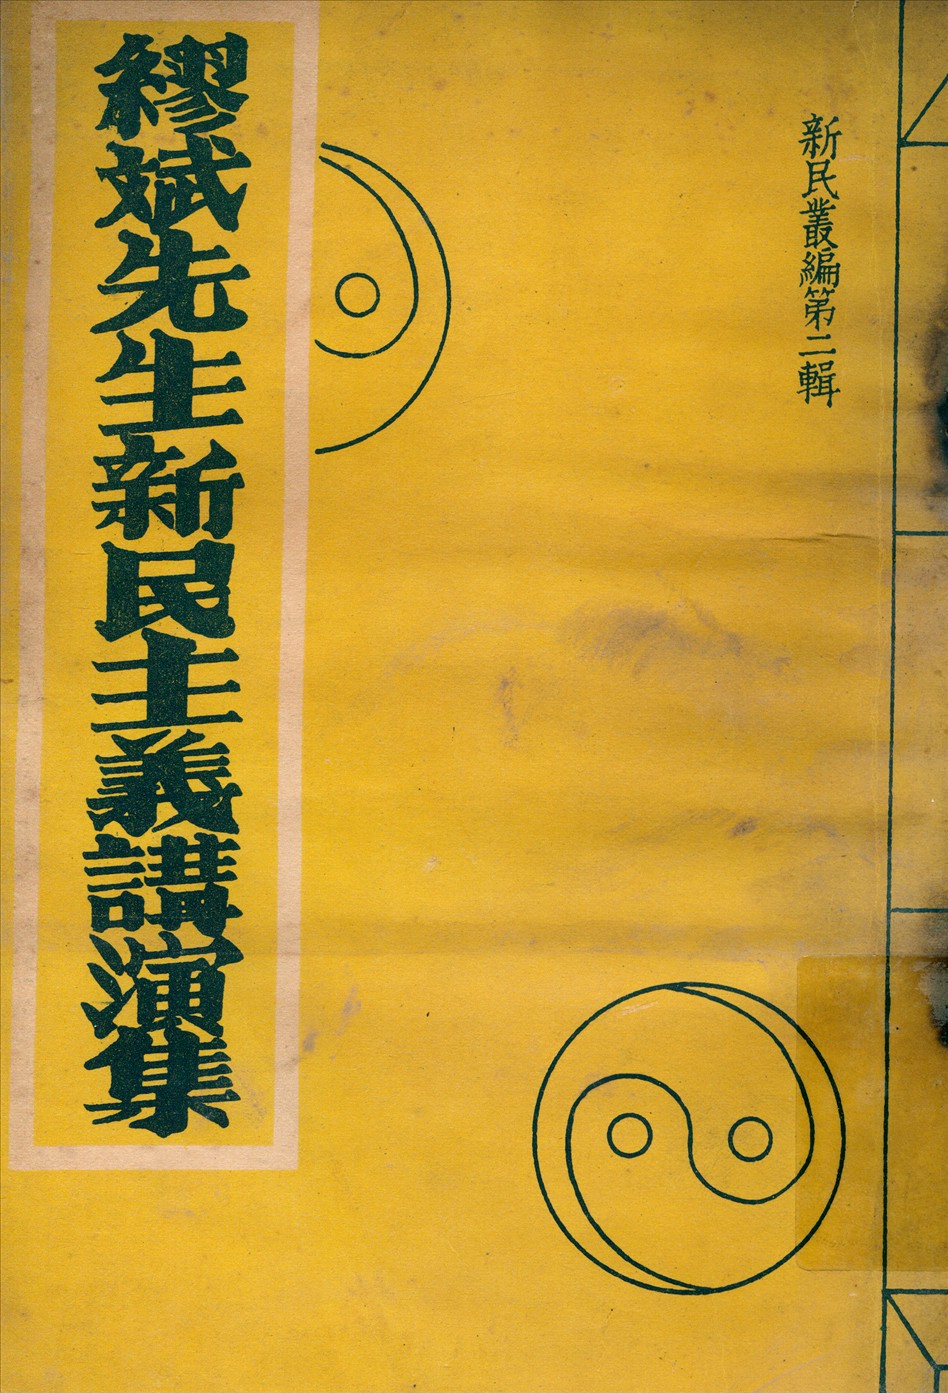 新民叢編第二輯
繆斌先生新民主義講演集